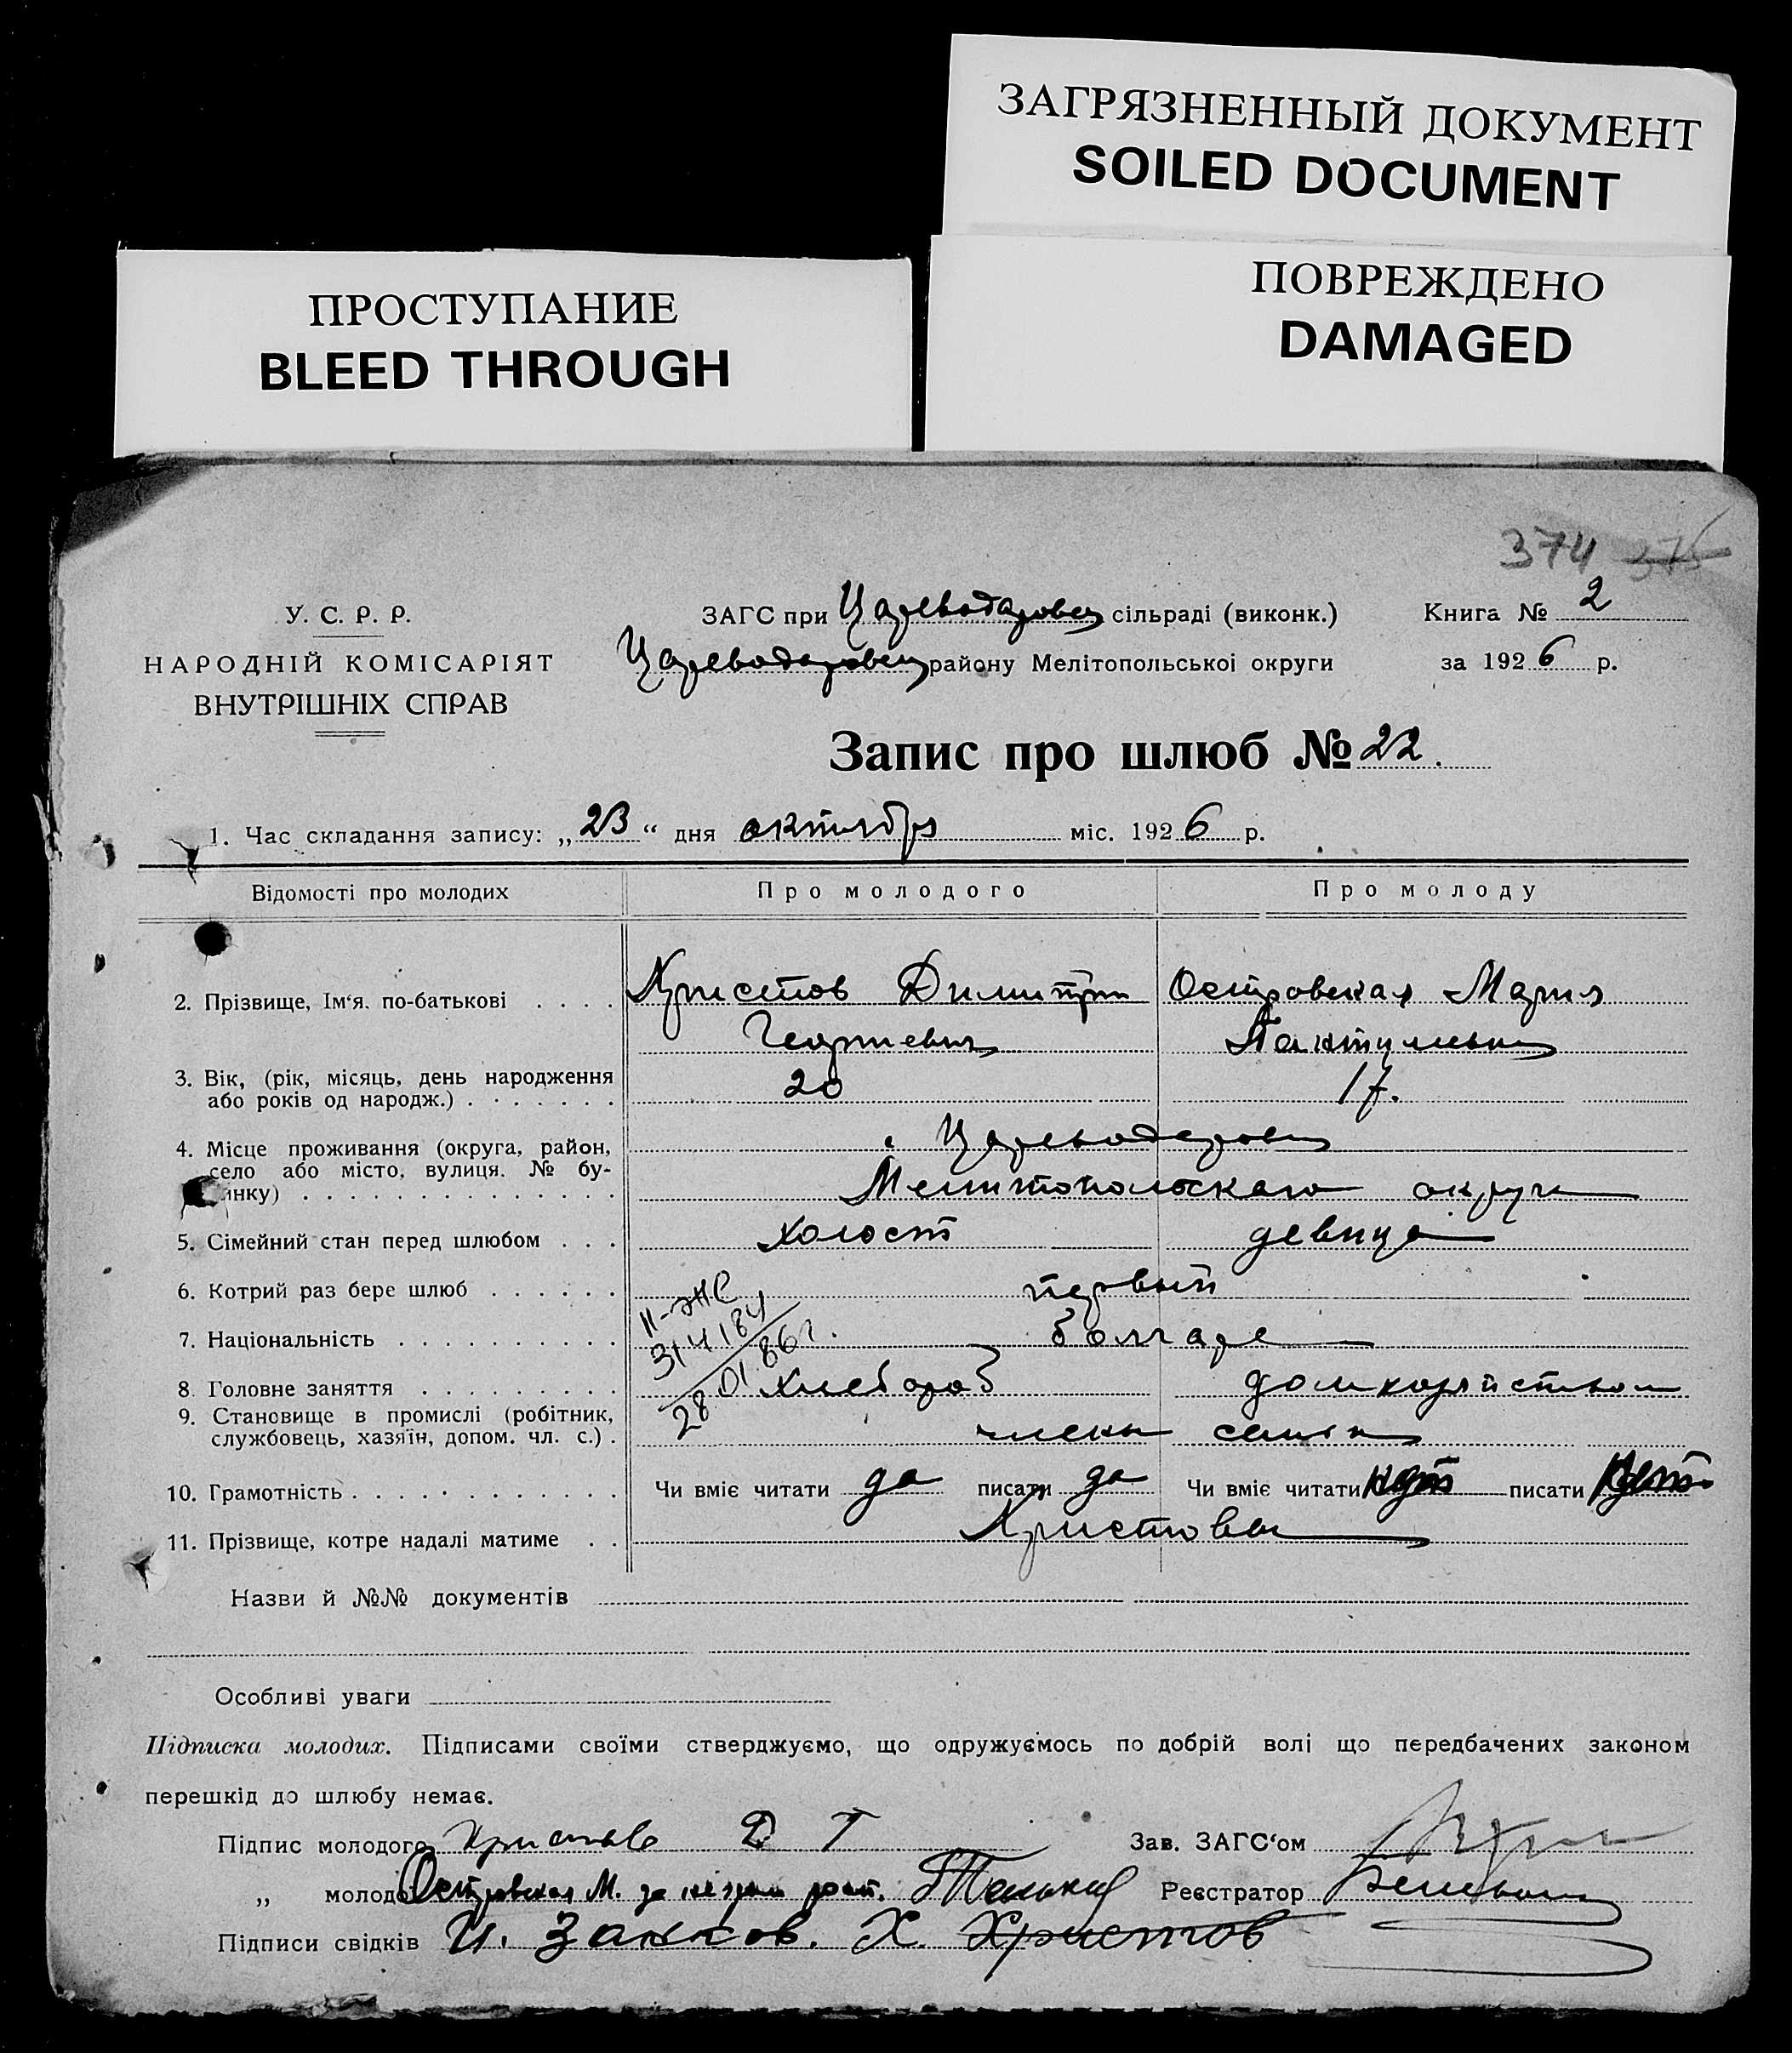 ЗАГРЯЗНЕННЫЙ ДОКУМЕНТ
SOILED DOCUMENT
ПРОСТУПАНИЕ
BLEED THROUGH
ПОВРЕЖДЕНО
DAMAGED
374 375
У. С. Р. Р.
НАРОДНІЙ КОМІСАРІЯТ
ВНУТРІШНІХ СПРАВ
ЗАГС при Царевода́ровец сільраді (виконк.)
Царевода́ровец району Мелітопольської округи
Книга № 2
за 1926 р.
Запис про шлюб № 22.
1. Час складання запису: „23“ дня октября міс. 1926 р.
Відомості про молодих
Про молодого
Про молоду
2. Прізвище, Ім‘я. по-батькові . . . . Христов Димитри Островская Мария
Георгиевич
3. Вік, (рік, місяць, день народження
або років од народж.) . . . . . . . 20 17.
4. Місце проживання (округа, район,
село або місто, вулиця. № бу-
инку) . . . . . . . . . . . . . .
Мелитопольскаго округа
5. Сімейний стан перед шлюбом . . . холост девица
6. Котрий раз бере шлюб . . . . . . первый
7. Національність . . . . . . . . . . болгаре
II-ЖС
314184
28.01.86г.
8. Головне заняття . . . . . . . . . хлебороб домхозяйством
9. Становище в промислі (робітник,
службовець, хазяїн, допом. чл. с.) . члены семьи
10. Грамотність . . . . . . . . . . . . Чи вміє читати да писати да Чи вміє читати нет писати нет
11. Прізвище, котре надалі матиме . . Христовы
Назви й №№ документів
Особливі уваги
Підписка молодих. Підписами своїми стверджуємо, що одружуємось по добрій волі що передбачених законом
перешкід до шлюбу немає.
Підпис молодого Христов Д Г Зав. ЗАГС‘ом
„ молодо Островская М. за неграм расп. Реєстратор
Підписи свідків И. Занков. Х. Христов